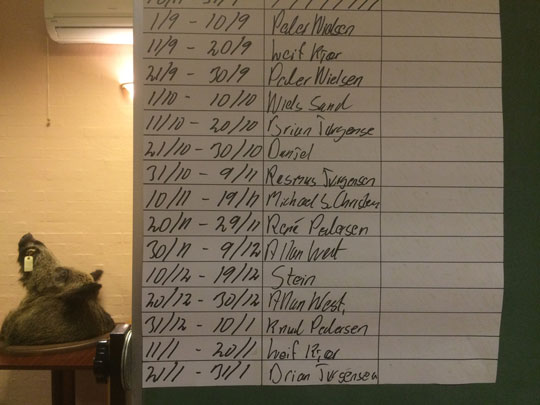 1/9 - 10/9 Peter Nielsen
11/9 - 20/9 Leif Kjær
21/9 - 30/9 Peter Nielsen
1/10 - 10/10 Niels Sand
11/10 - 20/10 Brian Jurgense
21/10 - 30/10 Daniel
31/10 - 9/11 Rasmus Jurgensen
10/11 - 19/11 Michael S. Christen
20/11 - 29/11 René Pedersen
30/11 - 9/12 Allan West
10/12 - 19/12 Stein
20/12 - 30/12 Allan West,
31/12 - 10/1 Knud Pedersen
11/1 - 20/1 Leif Kjær
21/1 - 31/1 Brian Jurgensen